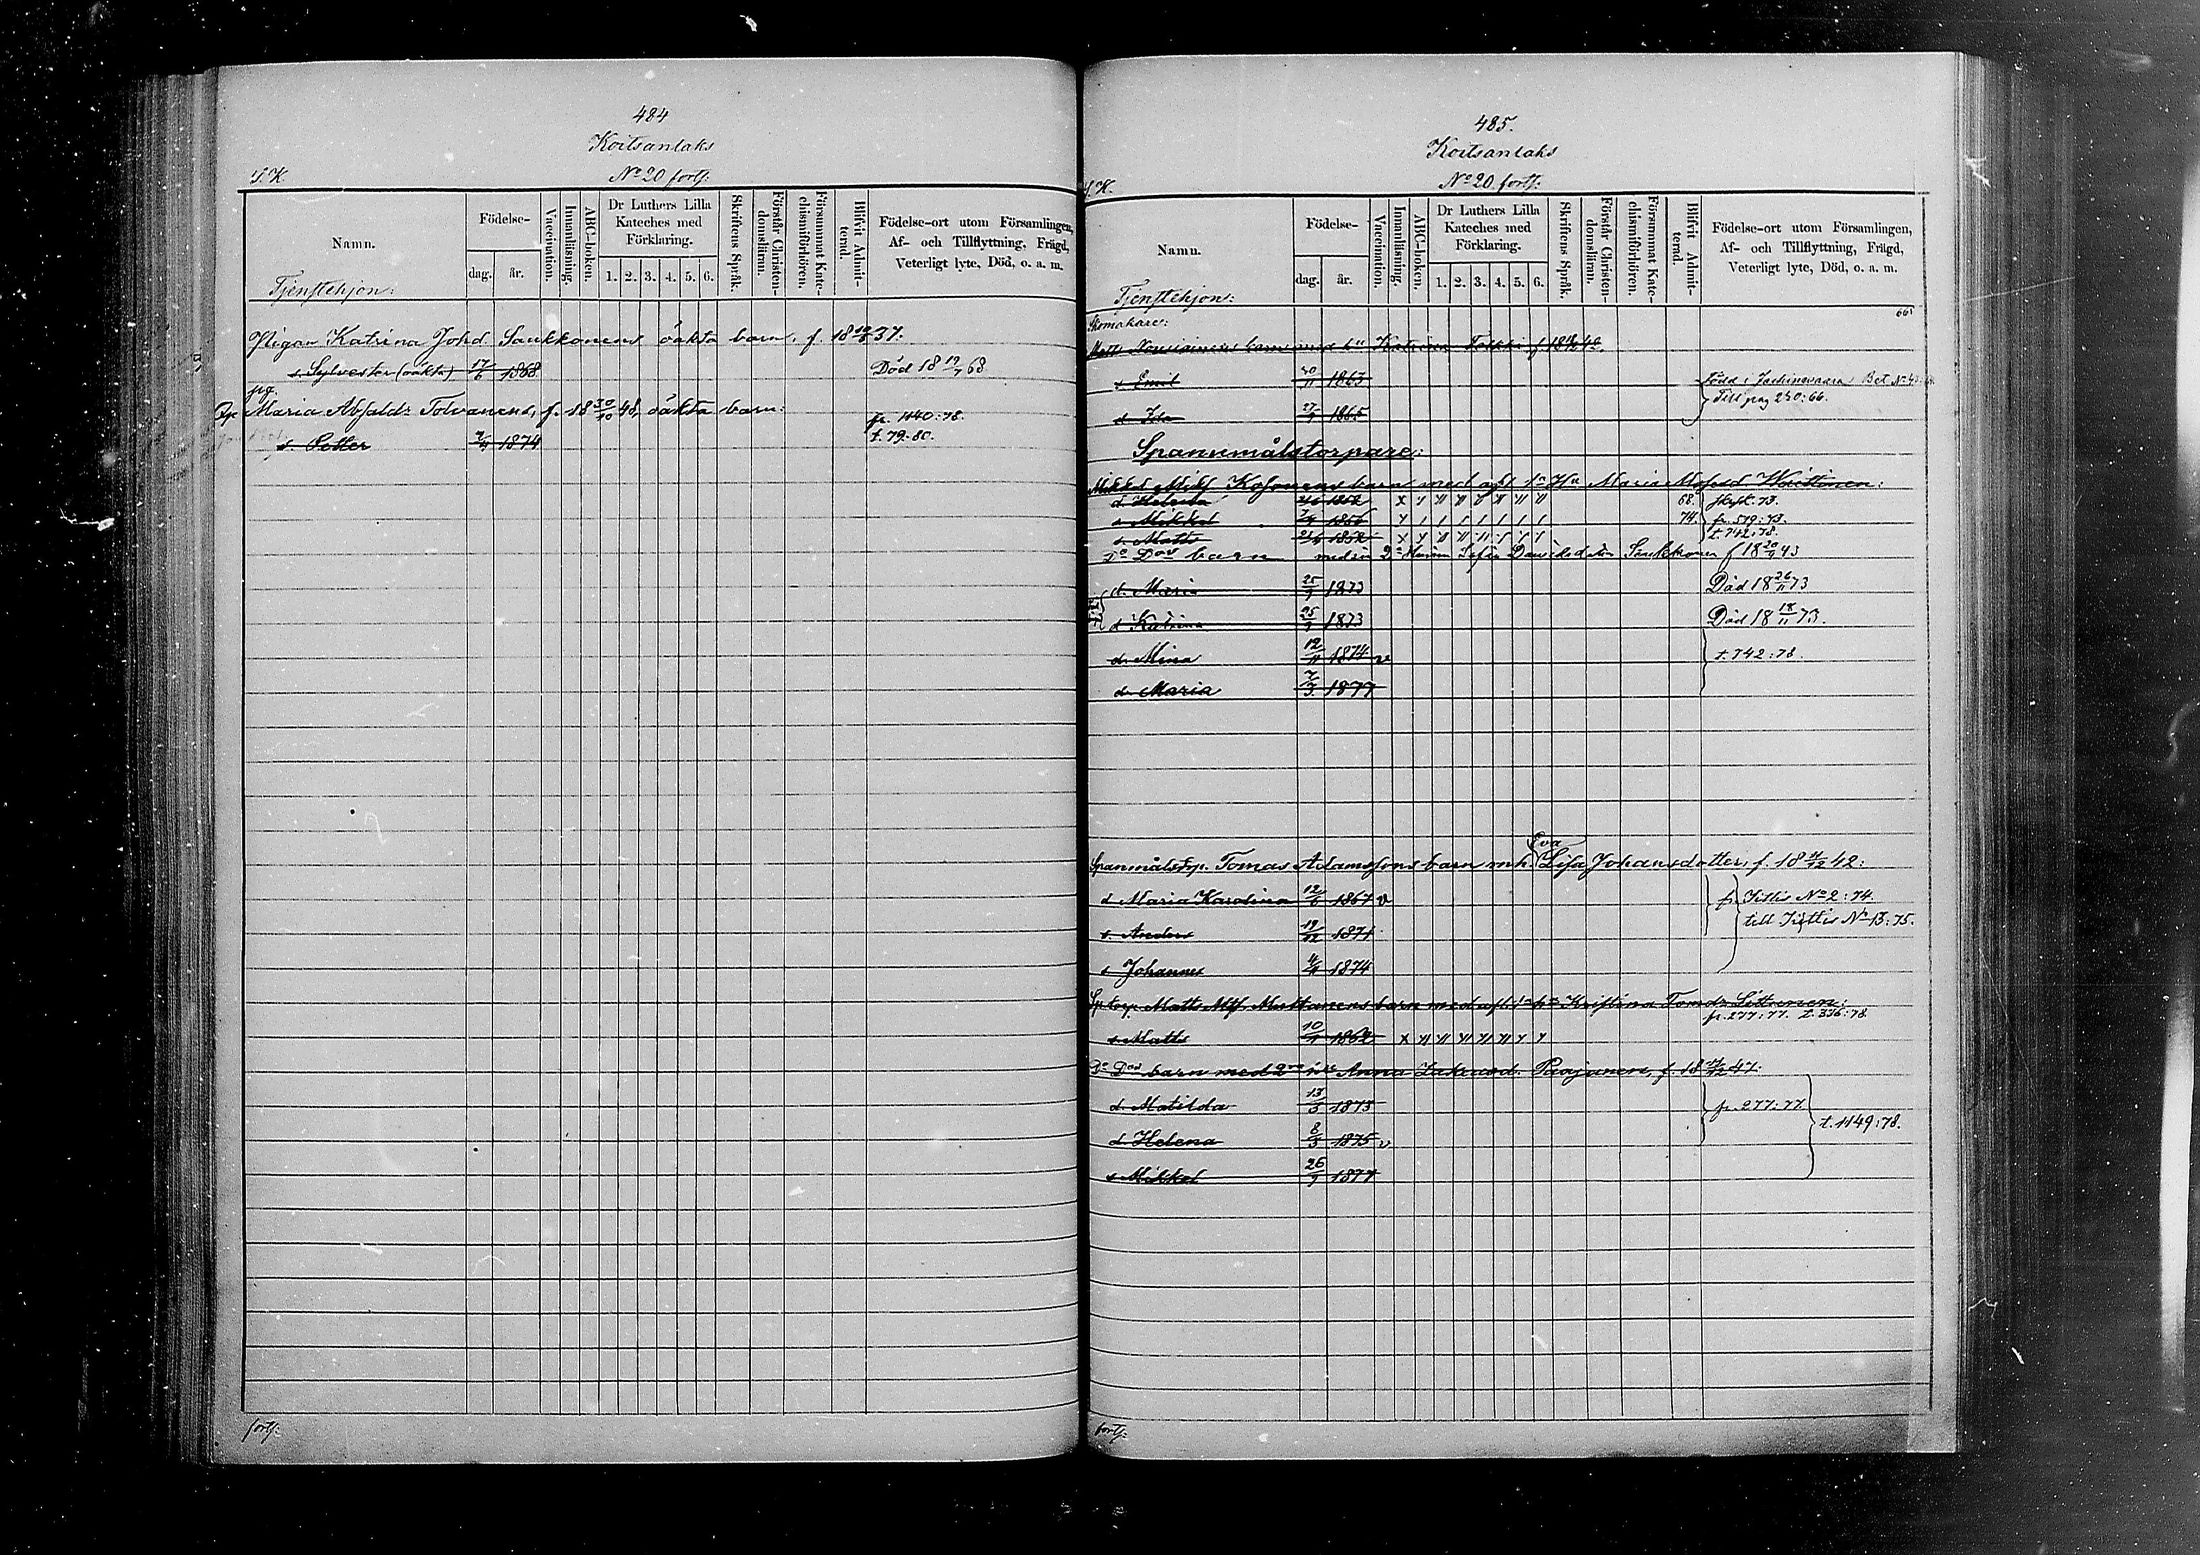 484
Koitsanlaks
S.K. No 20 forts:
Namn.
Födelse-
dag.
år.
Vaccination.
Innanläsning.
ABC-boken.
Dr Luthers Lilla Kateches med Förklaring.
1. 2. 3. 4. 5. 6.
Skriftens Språk.
Förstår Christendomsläran.
Försummat Katechismiförhören.
Blifvit Admitterad.
Födelse-ort utom Församlingen, Af- och Tillflyttning, Frägd, Veterligt lyte, Död, o. a. m.
Tjenstehjon:
Pigan Katrina Johd. Saukkonens oäkta barn, f. 18 37.
s. Sylvester (oäkta) 17/6 1868 Död 18 19/7 68
pig.
Maria Absaldr Tolvanens, f. 18 30/10 48, oäkta barn: fr. 1140:78.
s. Petter 1874 t. 79-80.
forts:
485.
Koitsanlaks
S.K. No 20 forts:
Namn.
Födelse-
dag.
år.
Vaccination.
Innanläsning.
ABC-boken.
Dr Luthers Lilla Kateches med Förklaring.
1. 2. 3. 4. 5. 6.
Skriftens Språk.
Förstår Christendomsläran.
Försummat Katechismiförhören.
Blifvit Admitterad.
Födelse-ort utom Församlingen, Af- och Tillflyttning, Frägd, Veterligt lyte, Död, o. a. m.
Tjenstehjon:
Skomakare: 66
Matts Nousiainens barn med Katrina f
s Emil 20/11 1863 född i
d. Ida 27/ 1865 Till pag 230:66.
Spannmålstorpare:
Mikkel barn med afl 1a Hu Maria
d. Helena 68.
s Mikkel 74. fr. 519:73.
s. Matts t. 742:78.
Do Dos barn med sin 2a Hustru Sofia Saukkonen f 18 20/9 43
d. Maria 25/9 1873 Död 18 26/11 73
d Katrina 25/9 1873 Död 18 18/11 73.
d. Mina 12/11 1874 v t. 742:78.
d. Maria 7/3 1877
Eva
Spanmålstrp. Tomas Adamssons barn mh. Lisa Johansdotter, f. 18 /12 42:
d Maria Karolina 12/6 1867 v fr Tittis No 2:74.
s. Anders 19/12 1871 till Tittis No 13:75.
s Johannes 1874
Sp torp Matts Muttanens barn med afl 1a h Kristina
fr. 277:77. t. 336:78
s Matts 10/ 1862
Do Dos barn med 2 h Anna Paajanen, f. 18 /12 47:
d. Matilda 13/3 1873 fr. 277:77.
d. Helena 8/3 1875 v t. 1149:78.
s Mikkel 26/9 1877
forts: